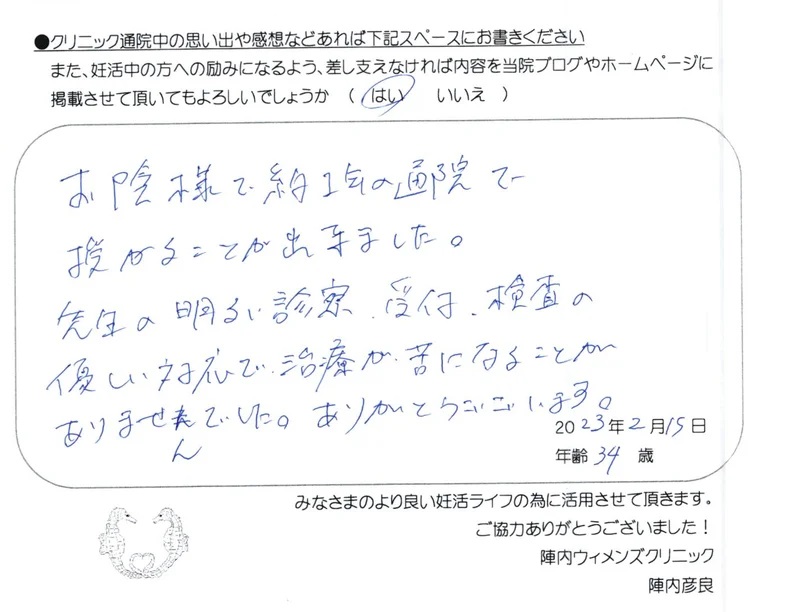 ●クリニック通院中の思い出や感想などあれば下記スペースにお書きください
また、妊活中の方への励みになるよう、差し支えなければ内容を当院ブログやホームページに
掲載させて頂いてもよろしいでしょうか （ はい いいえ ）
お陰様で約1年の通院で
授かることが出来ました。
先生の明るい診察、受付、検査の
優しい対応で、治療が苦になることが
ありませんでした。ありがとうございます。
2023年2月15日
年齢 34 歳
みなさまのより良い妊活ライフの為に活用させて頂きます。
ご協力ありがとうございました！
陣内ウィメンズクリニック
陣内彦良